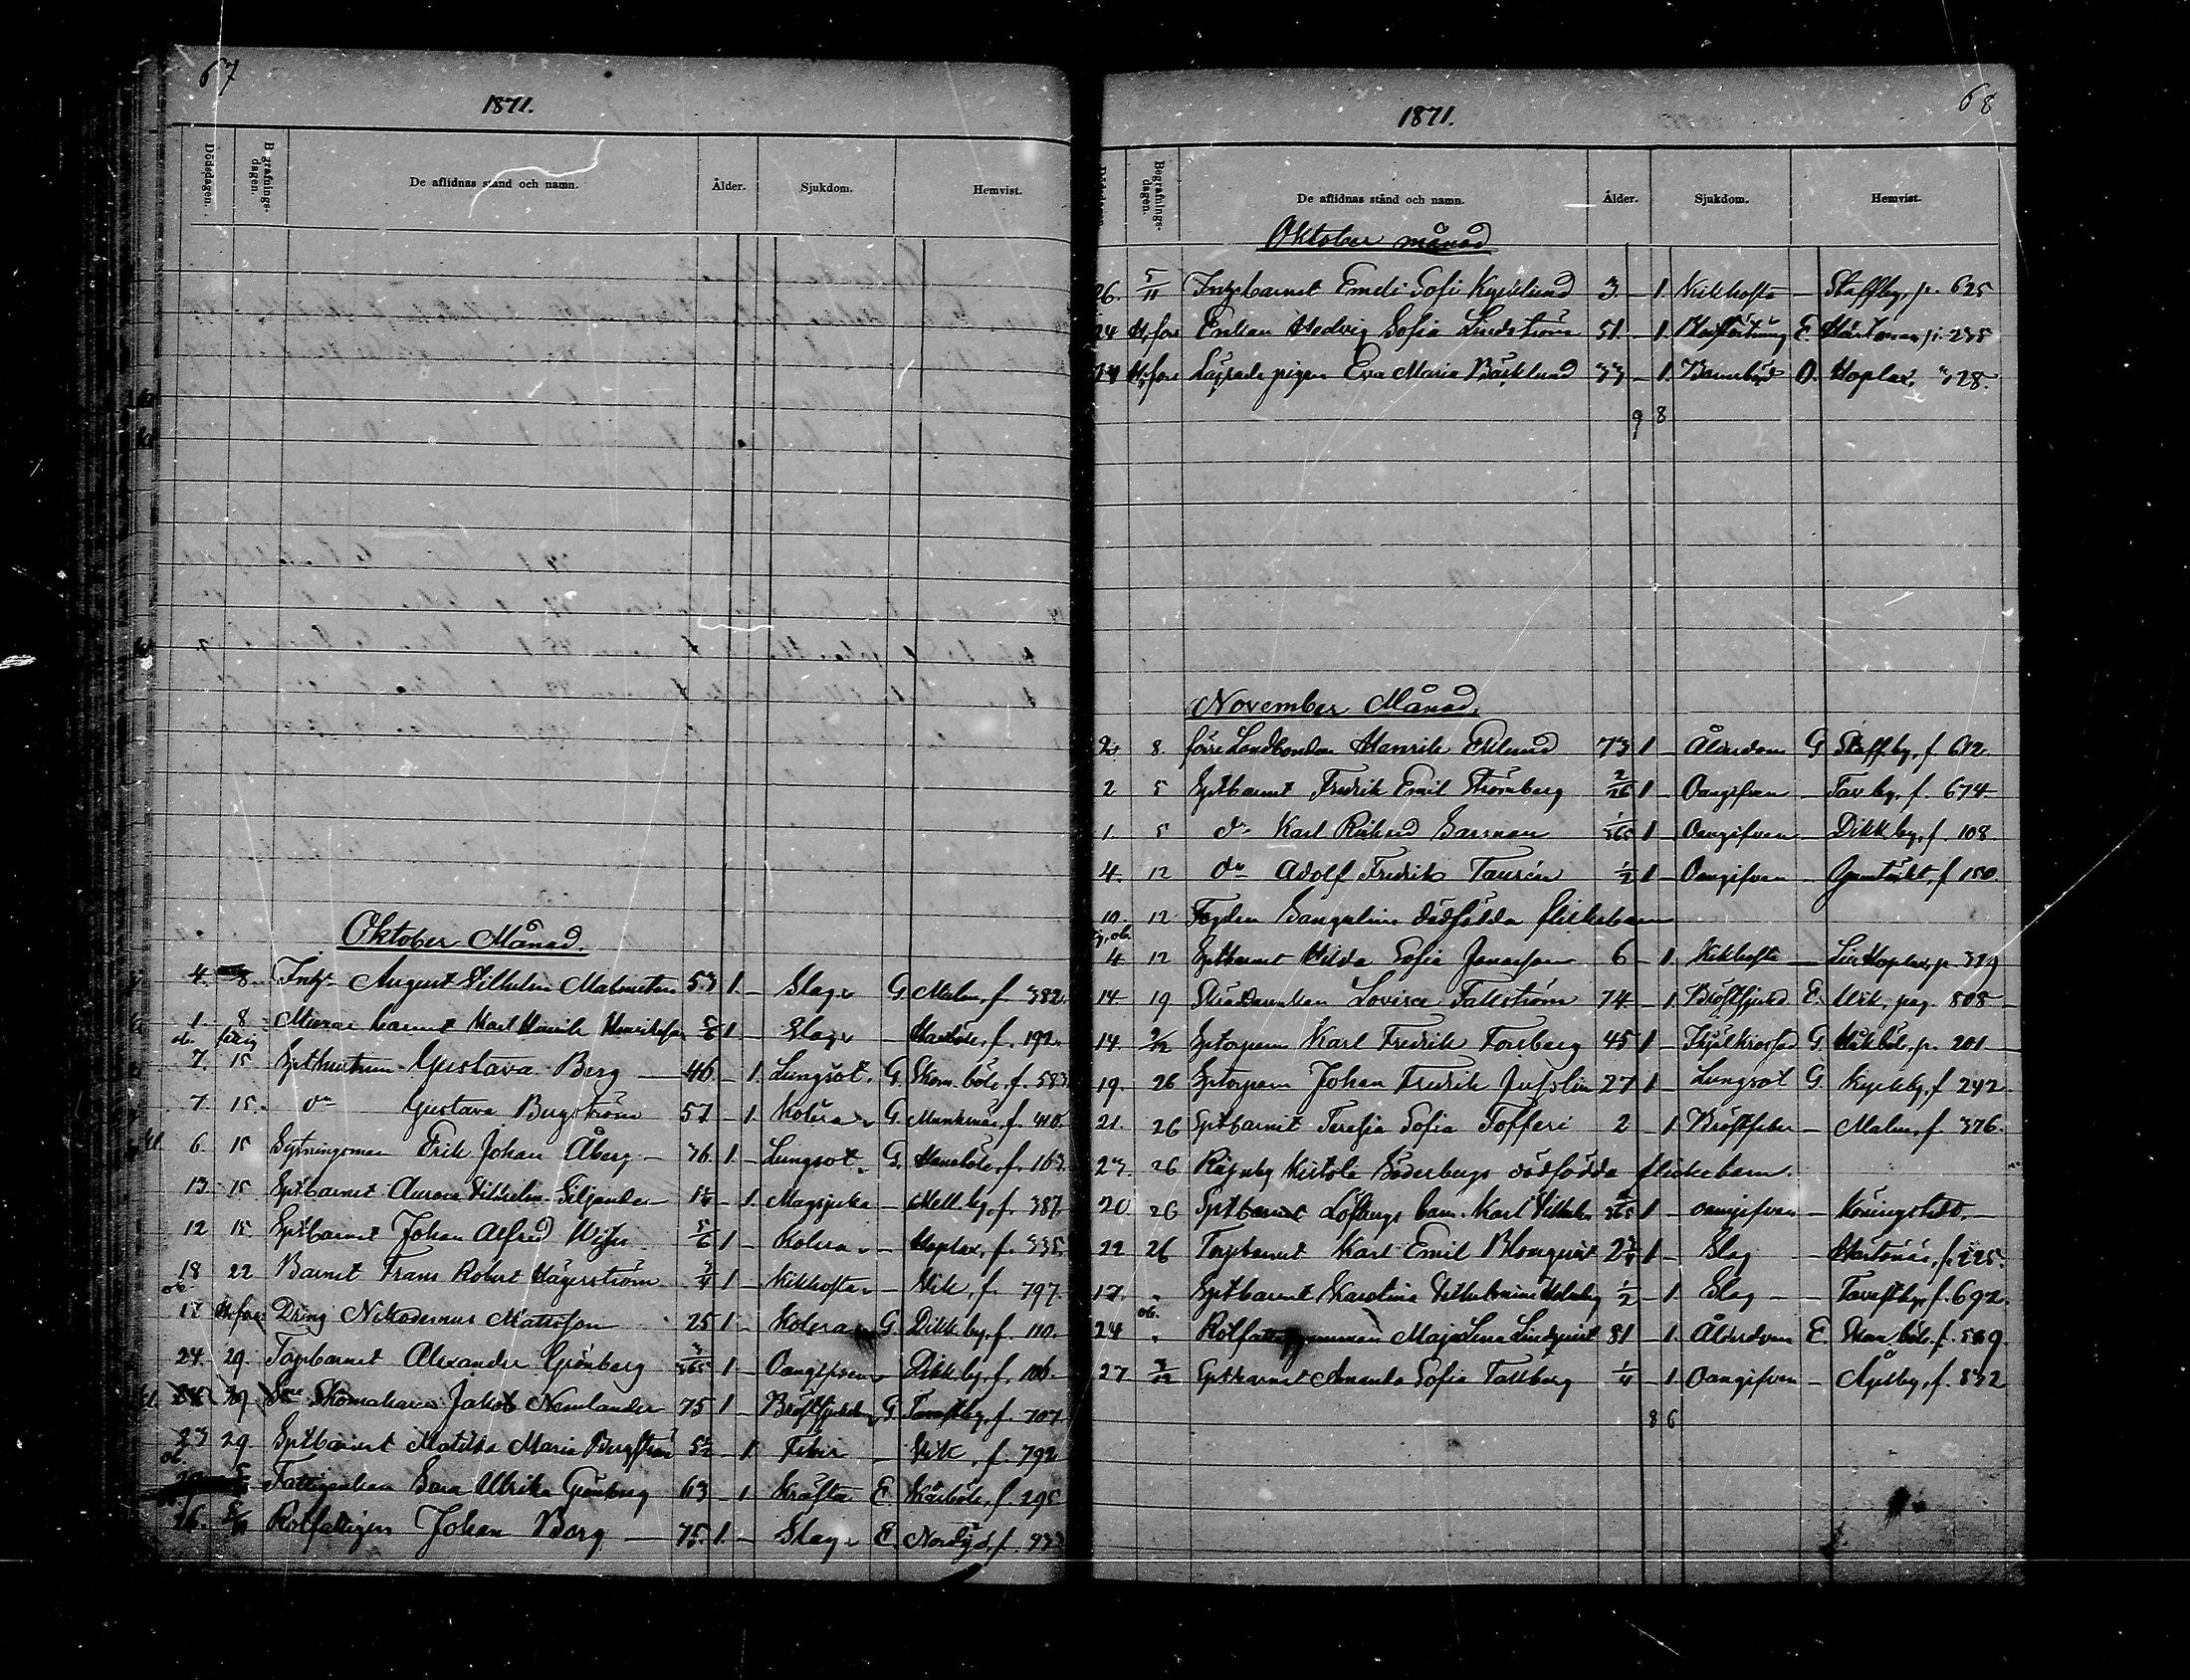 67
1871.
Dödsdagen. Begrafnings-dagen. De aflidnas stånd och namn. Ålder. Sjukdom. Hemvist.
Oktober Månad.
4. 8. August Vilhelm Malmsten 53 1. – Slag G. Malm, f. 382
1. 8 barnet Karl Henrik Henriksson 5/6 1 – Slag – f. 192
7. 15 Gustava Berg – 46 – 1. Lungsot. G. Skom.böle, f. 583
7. 15. do Gustava Bergström 57 – 1. Kolera G. Munksnäs, f. 410.
6. 15 Sytningsman Erik Johan Åberg – 76. 1. – Lungsot. G. f. 163.
13 15 Sptbarnet Aurora Vilhelmina Siljander – 1 1/4 – 1. Magsjuka – Mell.by, f. 387.
12 15. Sptbarnet Johan Alfred 5/6 1 – Kolera – Hoplax, f. 335.
18 22 Barnet Frans Robert Hägerström 3/4 1 – Kikhosta – Vik, f. 797.
17 H:fors Dräng Nikodemus Mattsson 25 1 – Kolera G Dikk.by, f. 110.
24. 29. Torpbarnet Alexander Grönberg 3/365 1 – Oangifven – Dikk.by, f. 106.
24 29 Skomakaren Jakob Nemlander 75 1 – Bröstsjukdom G. Tavastby, f. 707.
23 29 Sptbarnet Matilda Maria Bergström 5 1/2 – 1 Feber – Vik, f. 792
Fattigenkan Sara Ulrika Grönberg 63 – 1 Kräfta E. Kårböle, f. 295
16. 5/11 Rotfattigen Johan Borg – 75. 1. – Slag E. f. 933
68
1871.
Dödsdagen. Begrafnings-dagen. De aflidnas stånd och namn. Ålder. Sjukdom. Hemvist.
Oktober månad
26. 5/11 Emeli Sofi Kyrklund 3 – 1. Kikhosta – Staffby, p. 625
24 H:fors Enkan Hedvig Sofia Lindström 51. – 1. E. p. 235
H:fors pigan Eva Maria Bäcklund 33 – 1. Barnsbörd O. Hoplax, 328.
9 8
November Månad.
2 8. förre Landbonden Henrik Eklund 73 1 – Ålderdom G Staffby, f. 612.
2 5 Sptbarnet Fredrik Emil Strömberg 2/26 1 – Oangifven – Tav.by, f. 674
1. 5 do Karl Rikhard 1/365 1 – Oangifven – Dikk.by, f. 108.
4. 12 do Adolf Fredrik Taurén 1/2 1 – Oangifven – f. 150.
10. 12 Sangelins dödfödda flickebarn
4 12 Sptbarnet Hilda Sofia 6 – 1. Kikhosta – p. 319
14 19 Skräddarenkan Lovisa Fallström 74. – 1. Bröstsjukd E. Vik, pag. 808 –
14. 2/12 Sptorparen Karl Fredrik Forsberg 45 1 – G. p. 201 –
19. 26 Sptorparen Johan Fredrik 27 1 – Lungsot G. Kyrkby, f. 242
21. 26 Sptbarnet Teresia Sofia Tofferi 2 – 1. Bröstfeber – Malm, f. 376.
23. 26 Söderbergs dödfödda flickebarn.
20 26 barn Karl Vilhelm 1 – oangifven – Köningstedt. –
22 26 Torpbarnet Karl Emil Blomqvist 2 3/4 1 – Slag – f. 225.
17. " Sptbarnet Karolina Vilhelmina Holmberg 1/2 – 1 Slag – Tavastby, f. 692.
24 " Maja Lena Lindqvist 81 – 1. Ålderdom E. Skom.böle, f. 569.
27 3/12 Sptbarnet Amanda Sofia Tallberg 1/11 – 1. Oangifven – f. 832
8 6